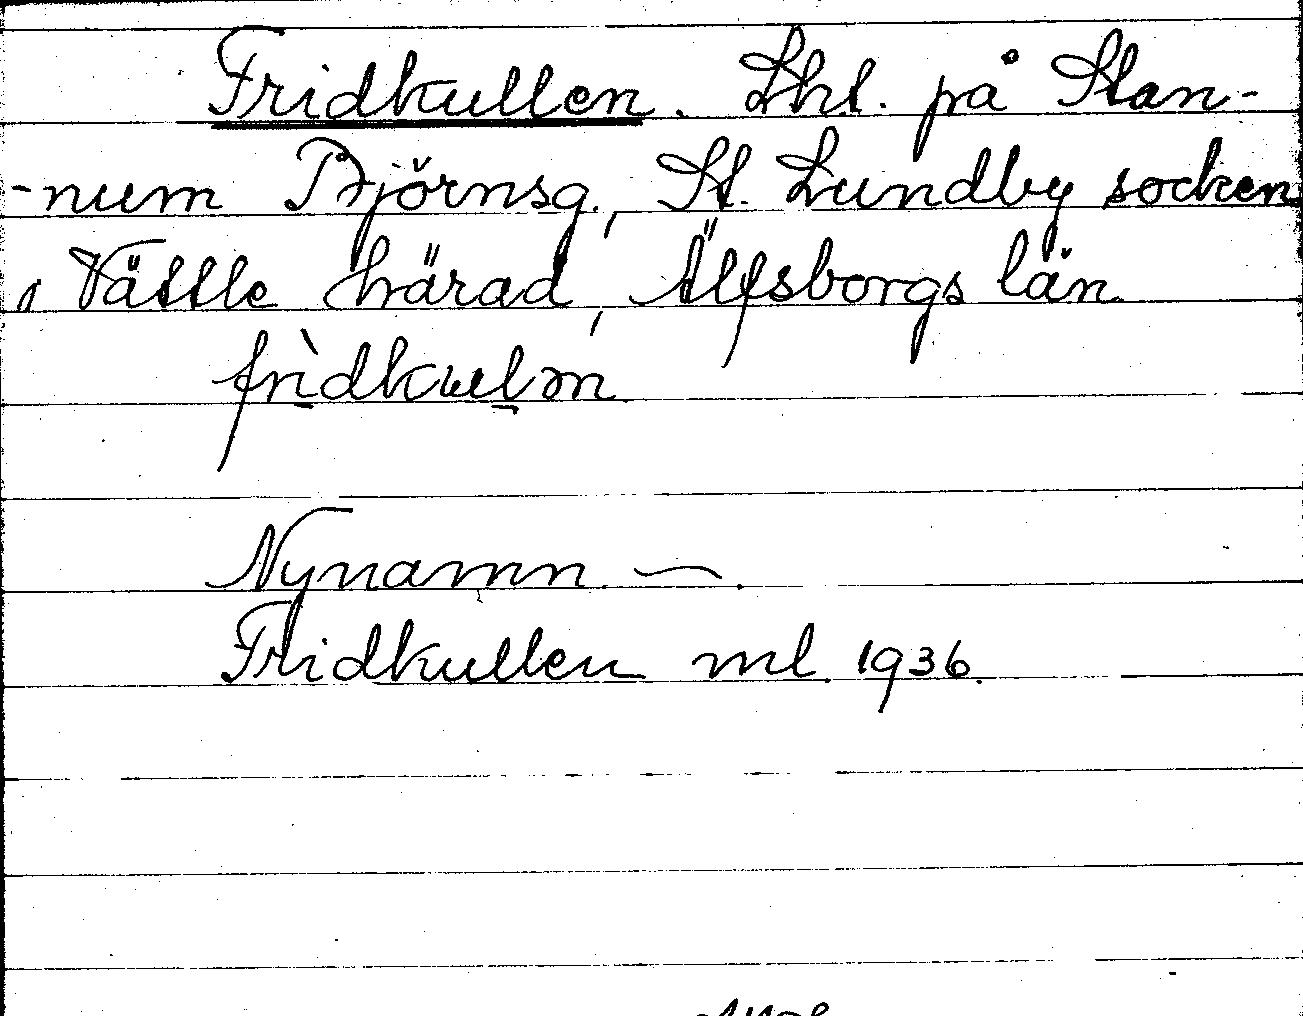 Fridkullen. Lht. på Stan-
-num Björnsg., St. Lundby socken
, Vättle härad, Älfsborgs län
frìdkulm
Nynamn —.
Fridkullen ml 1936.